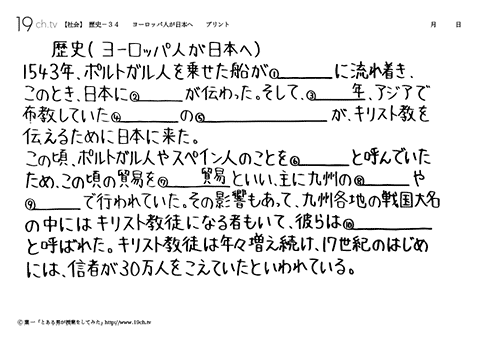 19ch.tv 【社会】 歴史－34 ヨーロッパ人が日本へ プリント 月 日
歴史(ヨーロッパ人が日本へ)
1543年、ポルトガル人を乗せた船が①______に流れ着き、
このとき、日本に②______が伝わった。そして、③____年、アジアで
布教していた④______の⑤____________が、キリスト教を
伝えるために日本に来た。
この頃、ポルトガル人やスペイン人のことを⑥______と呼んでいた
ため、この頃の貿易を⑦____貿易といい、主に九州の⑧______や
⑨______で行われていた。その影響もあって、九州各地の戦国大名
の中にはキリスト教徒になる者もいて、彼らは⑩________
と呼ばれた。キリスト教徒は年々増え続け、17世紀のはじめ
には、信者が30万人をこえていたといわれている。
©葉一「とある男が授業をしてみた」http://www.19ch.tv